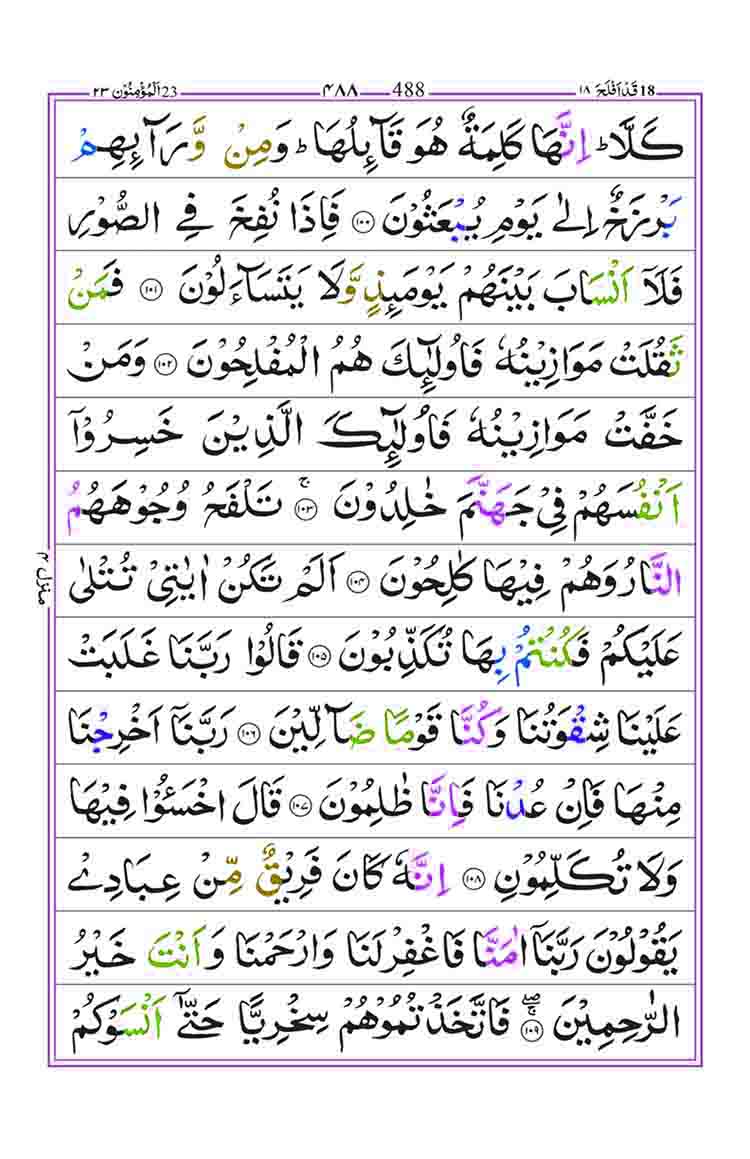 18 قَدْ اَفْلَحَ ١٨ 488 ٤٨٨ 23 اَلْمُؤْمِنُوْن ٢٣
كَلَّا ؕ اِنَّهَا كَلِمَةٌ هُوَ قَآئِلُهَا ؕ وَمِنْ وَّرَآئِهِمْ
بَرْزَخٌ اِلٰى يَوْمِ يُبْعَثُوْنَ ۝۱۰۰ فَاِذَا نُفِخَ فِي الصُّوْرِ
فَلَاۤ اَنْسَابَ بَيْنَهُمْ يَوْمَئِذٍ وَّلَا يَتَسَآءَلُوْنَ ۝۱۰۱ فَمَنْ
ثَقُلَتْ مَوَازِيْنُهٗ فَاُولٰٓئِكَ هُمُ الْمُفْلِحُوْنَ ۝۱۰۲ وَمَنْ
خَفَّتْ مَوَازِيْنُهٗ فَاُولٰٓئِكَ الَّذِيْنَ خَسِرُوْۤا
اَنْفُسَهُمْ فِيْ جَهَنَّمَ خٰلِدُوْنَ ۝۱۰۳ ۚ تَلْفَحُ وُجُوْهَهُمُ
النَّارُ وَهُمْ فِيْهَا كٰلِحُوْنَ ۝۱۰۴ اَلَمْ تَكُنْ اٰيٰتِيْ تُتْلٰى
عَلَيْكُمْ فَكُنْتُمْ بِهَا تُكَذِّبُوْنَ ۝۱۰۵ قَالُوْا رَبَّنَا غَلَبَتْ
عَلَيْنَا شِقْوَتُنَا وَكُنَّا قَوْمًا ضَآلِّيْنَ ۝۱۰۶ رَبَّنَاۤ اَخْرِجْنَا
مِنْهَا فَاِنْ عُدْنَا فَاِنَّا ظٰلِمُوْنَ ۝۱۰۷ قَالَ اخْسَئُوْا فِيْهَا
وَلَا تُكَلِّمُوْنِ ۝۱۰۸ اِنَّهٗ كَانَ فَرِيْقٌ مِّنْ عِبَادِيْ
يَقُوْلُوْنَ رَبَّنَاۤ اٰمَنَّا فَاغْفِرْ لَنَا وَارْحَمْنَا وَاَنْتَ خَيْرُ
الرّٰحِمِيْنَ ۝۱۰۹ ۚۖ فَاتَّخَذْتُمُوْهُمْ سِخْرِيًّا حَتّٰۤى اَنْسَوْكُمْ
منزل ٤